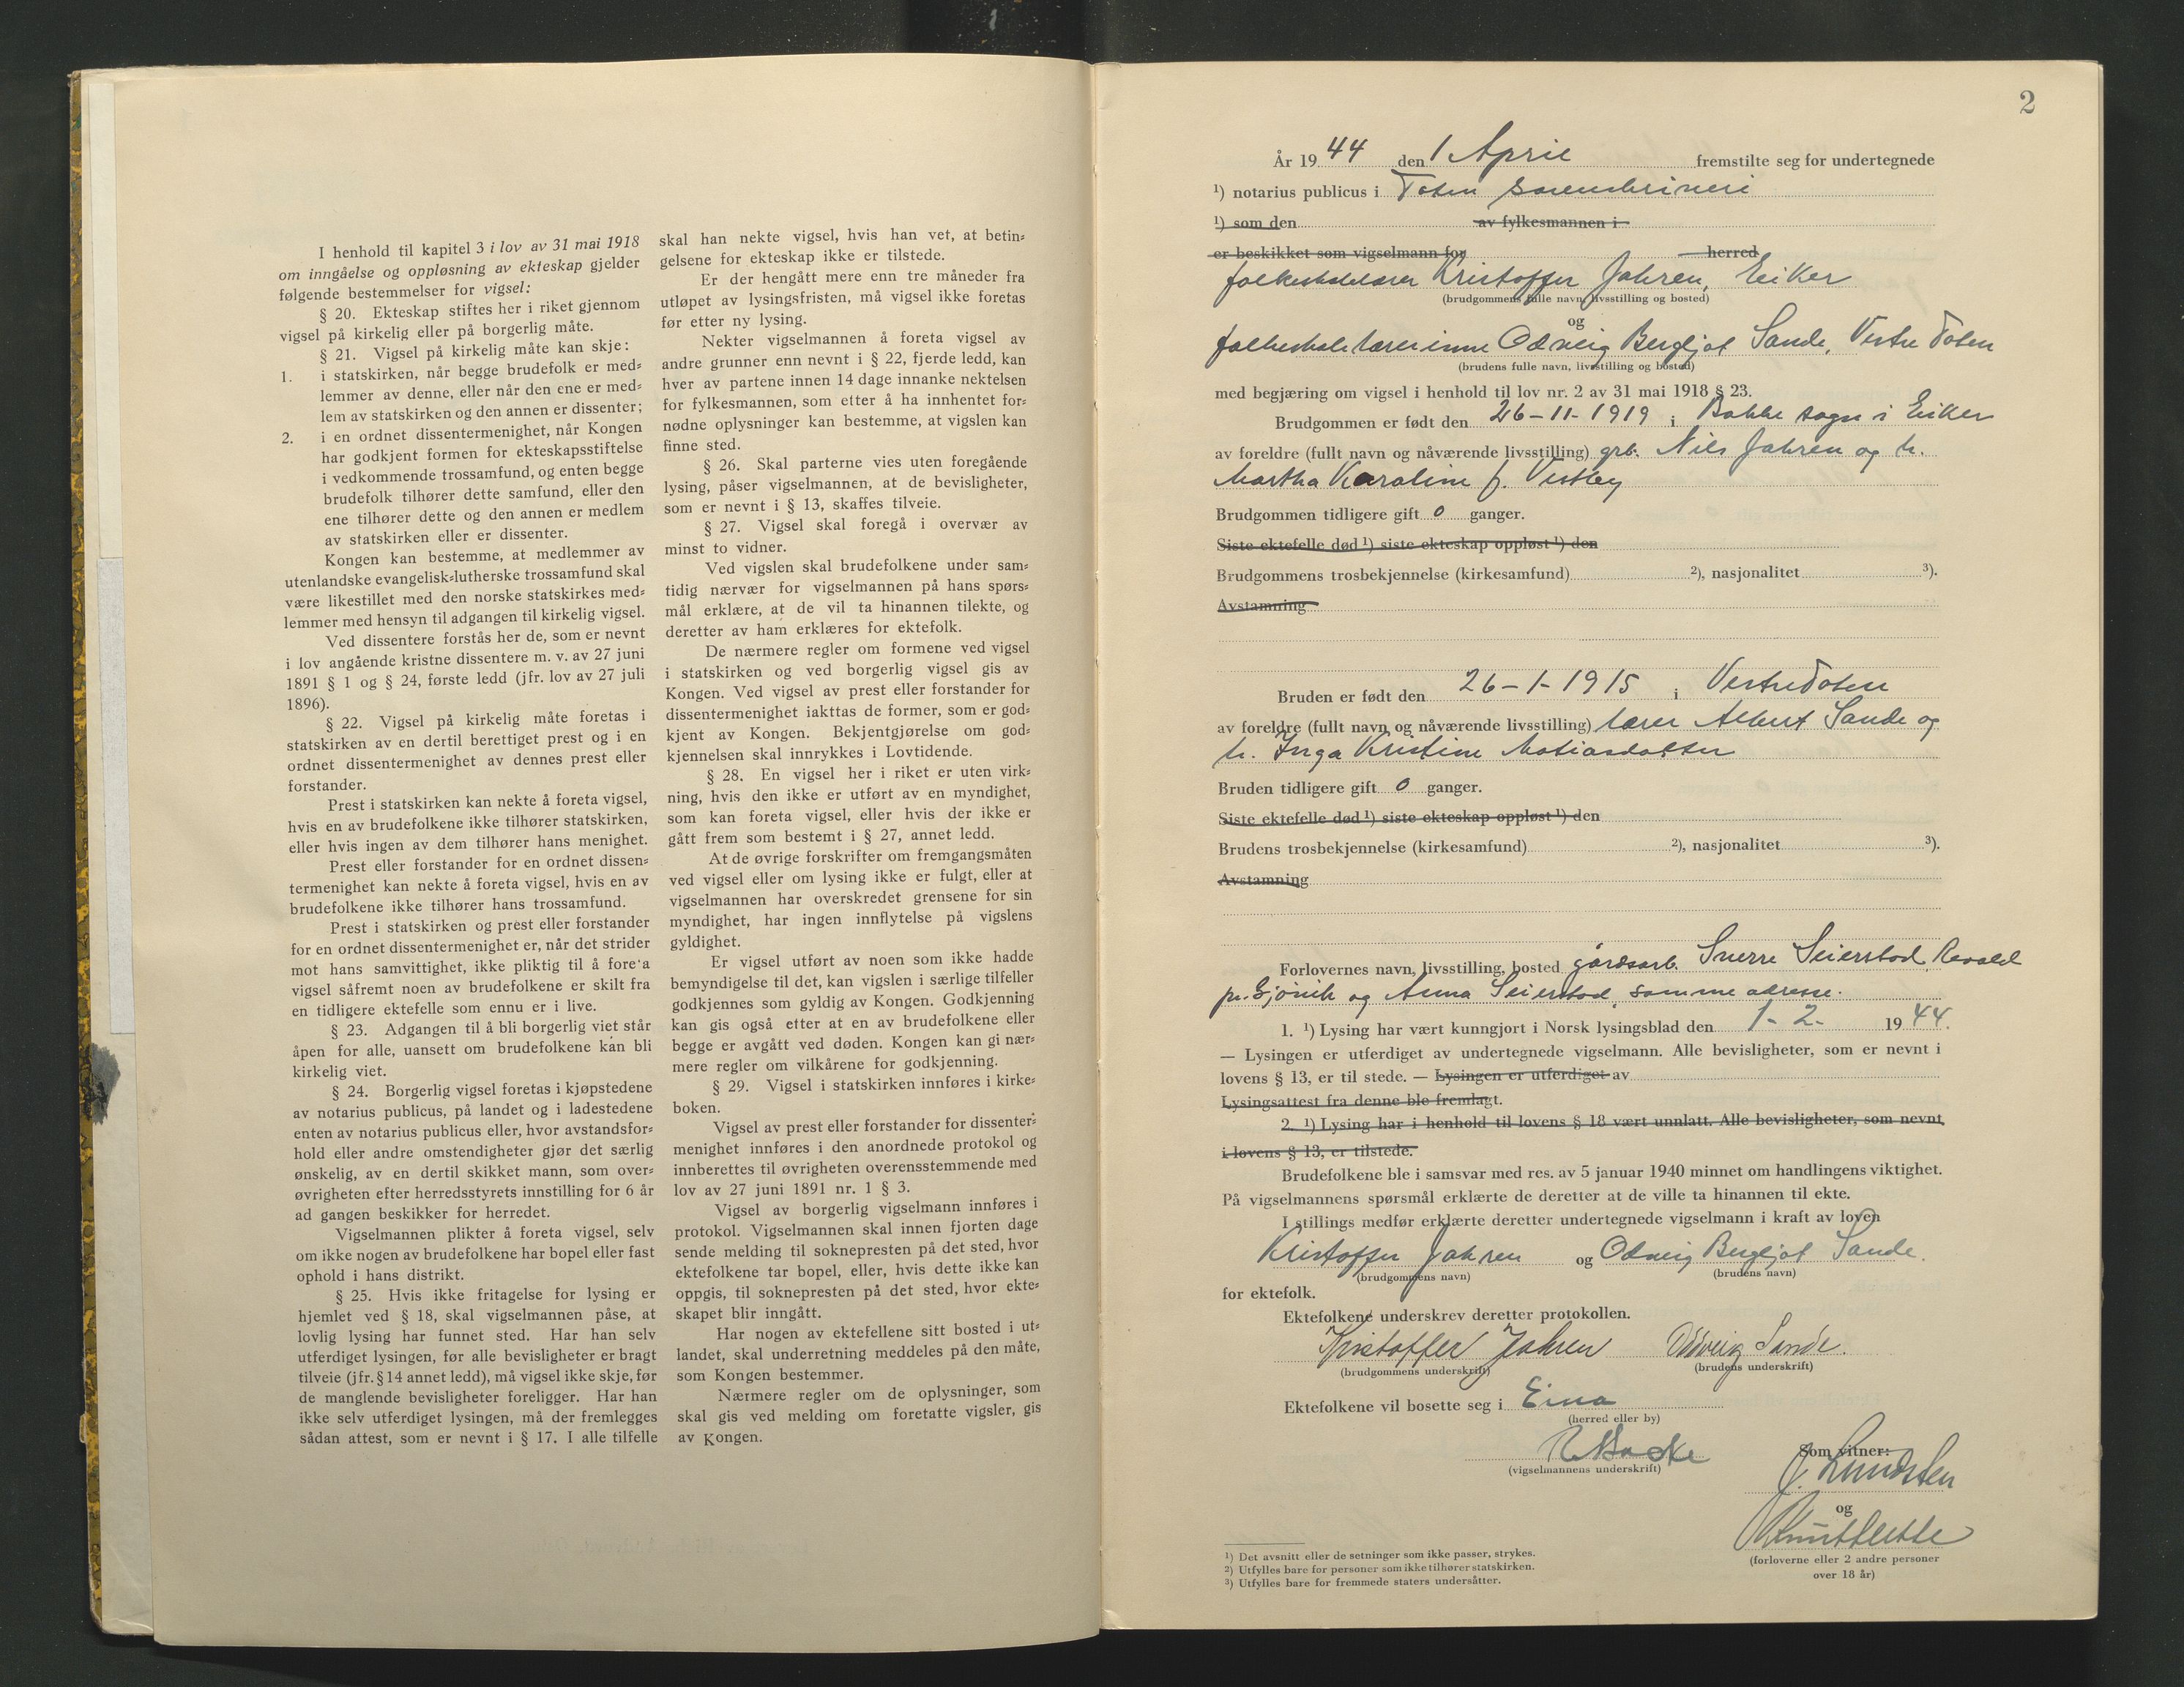 I henhold til kapitel 3 i lov av 31 mai 1918
om inngåelse og oppløsning av ekteskap gjelder
følgende bestemmelser for vigsel:
§ 20. Ekteskap stiftes her i riket gjennom
vigsel på kirkelig eller på borgerlig måte.
§ 21. Vigsel på kirkelig måte kan skje:
1. i statskirken, når begge brudefolk er med=
lemmer av denne, eller når den ene er med=
lem av statskirken og den annen er dissenter;
2. i en ordnet dissentermenighet, når Kongen
har godkjent formen for ekteskapsstiftelse
i vedkommende trossamfund, og enten begge
brudefolk tilhører dette samfund, eller den
ene tilhører dette og den annen er medlem
av statskirken eller er dissenter.
Kongen kan bestemme, at medlemmer av
utenlandske evangelisk=lutherske trossamfund skal
være likestillet med den norske statskirkes med=
lemmer med hensyn til adgangen til kirkelig vigsel.
Ved dissentere forstås her de, som er nevnt
i lov angående kristne dissentere m. v. av 27 juni
1891 § 1 og § 24, første ledd (jfr. lov av 27 juli
1896).
§ 22. Vigsel på kirkelig måte foretas i
statskirken av en dertil berettiget prest og i en
ordnet dissentermenighet av dennes prest eller
forstander.
Prest i statskirken kan nekte å foreta vigsel,
hvis en av brudefolkene ikke tilhører statskirken,
eller hvis ingen av dem tilhører hans menighet.
Prest eller forstander for en ordnet dissen=
termenighet kan nekte å foreta vigsel, hvis en av
brudefolkene ikke tilhører hans trossamfund.
Prest i statskirken og prest eller forstander
for en ordnet dissentermenighet er, når det strider
mot hans samvittighet, ikke pliktig til å foreta
vigsel såfremt noen av brudefolkene er skilt fra
en tidligere ektefelle som ennu er i live.
§ 23. Adgangen til å bli borgerlig viet står
åpen for alle, uansett om brudefolkene kan bli
kirkelig viet.
§ 24. Borgerlig vigsel foretas i kjøpstedene
av notarius publicus, på landet og i ladestedene
enten av notarius publicus eller, hvor avstandsfor=
hold eller andre omstendigheter gjør det særlig
ønskelig, av en dertil skikket mann, som over=
øvrigheten efter herredsstyrets innstilling for 6 år
ad gangen beskikker for herredet.
Vigselmannen plikter å foreta vigsel, selv
om ikke nogen av brudefolkene har bopel eller fast
ophold i hans distrikt.
§ 25. Hvis ikke fritagelse for lysing er
hjemlet ved § 18, skal vigselmannen påse, at
lovlig lysing har funnet sted. Har han selv
utferdiget lysingen, før alle bevisligheter er bragt
tilveie (jfr. § 14 annet ledd), må vigsel ikke skje, før
de manglende bevisligheter foreligger. Har han
ikke selv utferdiget lysingen, må der fremlegges
sådan attest, som er nevnt i § 17. I alle tilfelle
skal han nekte vigsel, hvis han vet, at betin=
gelsene for ekteskap ikke er tilstede.
Er der hengått mere enn tre måneder fra
utløpet av lysingsfristen, må vigsel ikke foretas
før etter ny lysing.
Nekter vigselmannen å foreta vigsel av
andre grunner enn nevnt i § 22, fjerde ledd, kan
hver av partene innen 14 dage innanke nektelsen
for fylkesmannen, som etter å ha innhentet for=
nødne oplysninger kan bestemme, at vigslen kan
finne sted.
§ 26. Skal parterne vies uten foregående
lysing, påser vigselmannen, at de bevisligheter,
som er nevnt i § 13, skaffes tilveie.
§ 27. Vigsel skal foregå i overvær av
minst to vidner.
Ved vigslen skal brudefolkene under sam=
tidig nærvær for vigselmannen på hans spørs=
mål erklære, at de vil ta hinannen tilekte, og
deretter av ham erklæres for ektefolk.
De nærmere regler om formene ved vigsel
i statskirken og ved borgerlig vigsel gis av
Kongen. Ved vigsel av prest eller forstander for
dissentermenighet iakttas de former, som er god=
kjent av Kongen. Bekjentgjørelse om god=
kjennelsen skal innrykkes i Lovtidende.
§ 28. En vigsel her i riket er uten virk=
ning, hvis den ikke er utført av en myndighet,
som kan foreta vigsel, eller hvis der ikke er
gått frem som bestemt i § 27, annet ledd.
At de øvrige forskrifter om fremgangsmåten
ved vigsel eller om lysing ikke er fulgt, eller at
vigselmannen har overskredet grensene for sin
myndighet, har ingen innflytelse på vigslens
gyldighet.
Er vigsel utført av noen som ikke hadde
bemyndigelse til det, kan vigslen i særlige tilfeller
godkjennes som gyldig av Kongen. Godkjenning
kan gis også etter at en av brudefolkene eller
begge er avgått ved døden. Kongen kan gi nær=
mere regler om vilkårene for godkjenning.
§ 29. Vigsel i statskirken innføres i kirke=
boken.
Vigsel av prest eller forstander for dissenter=
menighet innføres i den anordnede protokol og
innberettes til øvrigheten overensstemmende med
lov av 27 juni 1891 nr. 1 § 3.
Vigsel av borgerlig vigselmann innføres i
protokol. Vigselmannen skal innen fjorten dage
sende melding til soknepresten på det sted, hvor
ektefolkene tar bopel, eller, hvis dette ikke kan
oppgis, til soknepresten på det sted, hvor ekte=
skapet blir inngått.
Har nogen av ektefellene sitt bosted i ut=
landet, skal underretning meddeles på den måte,
som Kongen bestemmer.
Nærmere regler om de oplysninger, som
skal gis ved melding om foretatte vigsler, gis
av Kongen.
2
År 1944 den 1 April fremstilte seg for undertegnede
¹) notarius publicus i Toten sorenskriveri
¹) som den av fylkesmannen i
er beskikket som vigselmann for herred
folkeskolelærer Kristoffer Jahren, Eiker
(brudgommens fulle navn, livsstilling og bosted)
og
folkeskolelærerinne Odveig Bergljot Sande, Vestre Toten
(brudens fulle navn, livsstilling og bosted)
med begjæring om vigsel i henhold til lov nr. 2 av 31 mai 1918 § 23.
Brudgommen er født den 26-11-1919 i Bakke sogn i Eiker
av foreldre (fullt navn og nåværende livsstilling) grb. Nils Jahren og h.
Martha Karoline f. Vestby
Brudgommen tidligere gift 0 ganger.
Siste ektefelle død ¹) siste ekteskap oppløst ¹) den
Brudgommens trosbekjennelse (kirkesamfund) ²), nasjonalitet ³).
Avstamning
Bruden er født den 26-1-1915 i Vestre Toten
av foreldre (fullt navn og nåværende livsstilling) lærer Albert Sande og
h. Inga Kristine Matiasdatter
Bruden tidligere gift 0 ganger.
Siste ektefelle død ¹) siste ekteskap oppløst ¹) den
Brudens trosbekjennelse (kirkesamfund) ²), nasjonalitet ³).
Avstamning
Forlovernes navn, livsstilling, bosted gårdsarb. Sverre Seierstad, Revald
pr. Gjøvik og Anna Seierstad, samme adresse.
1. ¹) Lysing har vært kunngjort i Norsk lysingsblad den 1-2- 1944.
— Lysingen er utferdiget av undertegnede vigselmann. Alle bevisligheter, som er nevnt i
lovens § 13, er til stede. — Lysingen er utferdiget av
Lysingsattest fra denne ble fremlagt.
2. ¹) Lysing har i henhold til lovens § 18 vært unnlatt. Alle bevisligheter, som nevnt
i lovens § 13, er tilstede.
Brudefolkene ble i samsvar med res. av 5 januar 1940 minnet om handlingens viktighet.
På vigselmannens spørsmål erklærte de deretter at de ville ta hinannen til ekte.
I stillings medfør erklærte deretter undertegnede vigselmann i kraft av loven
Kristoffer Jahren og Odveig Bergljot Sande.
(brudgommens navn) (brudens navn)
for ektefolk.
Ektefolkene underskrev deretter protokollen.
Kristoffer Jahren Oddveig Sande.
(brudgommens underskrift) (brudens underskrift)
Ektefolkene vil bosette seg i Eina
(herred eller by)
(vigselmannens underskrift)
Som vitner:
J. Lundsten
og
(forloverne eller 2 andre personer
over 18 år)
¹) Det avsnitt eller de setninger som ikke passer, strykes.
²) Utfylles bare for personer som ikke tilhører statskirken.
³) Utfylles bare for fremmede staters undersåtter.